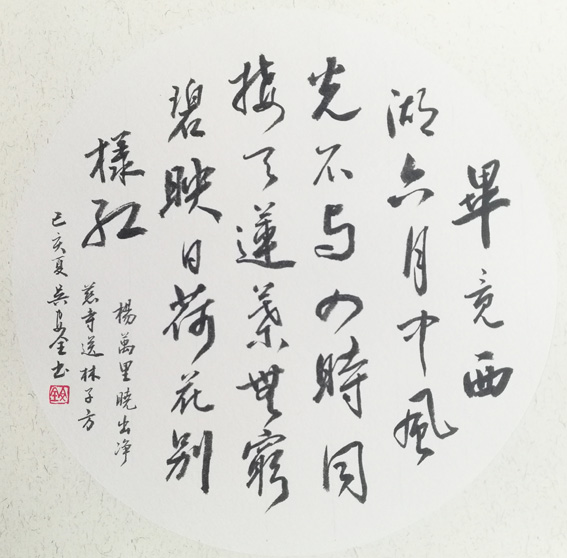 畢竟西
湖六月中風
光不与四時同
接天蓮葉無窮
碧映日荷花别
樣紅
楊萬里曉出净
慈寺送林子方
己亥夏吴全书